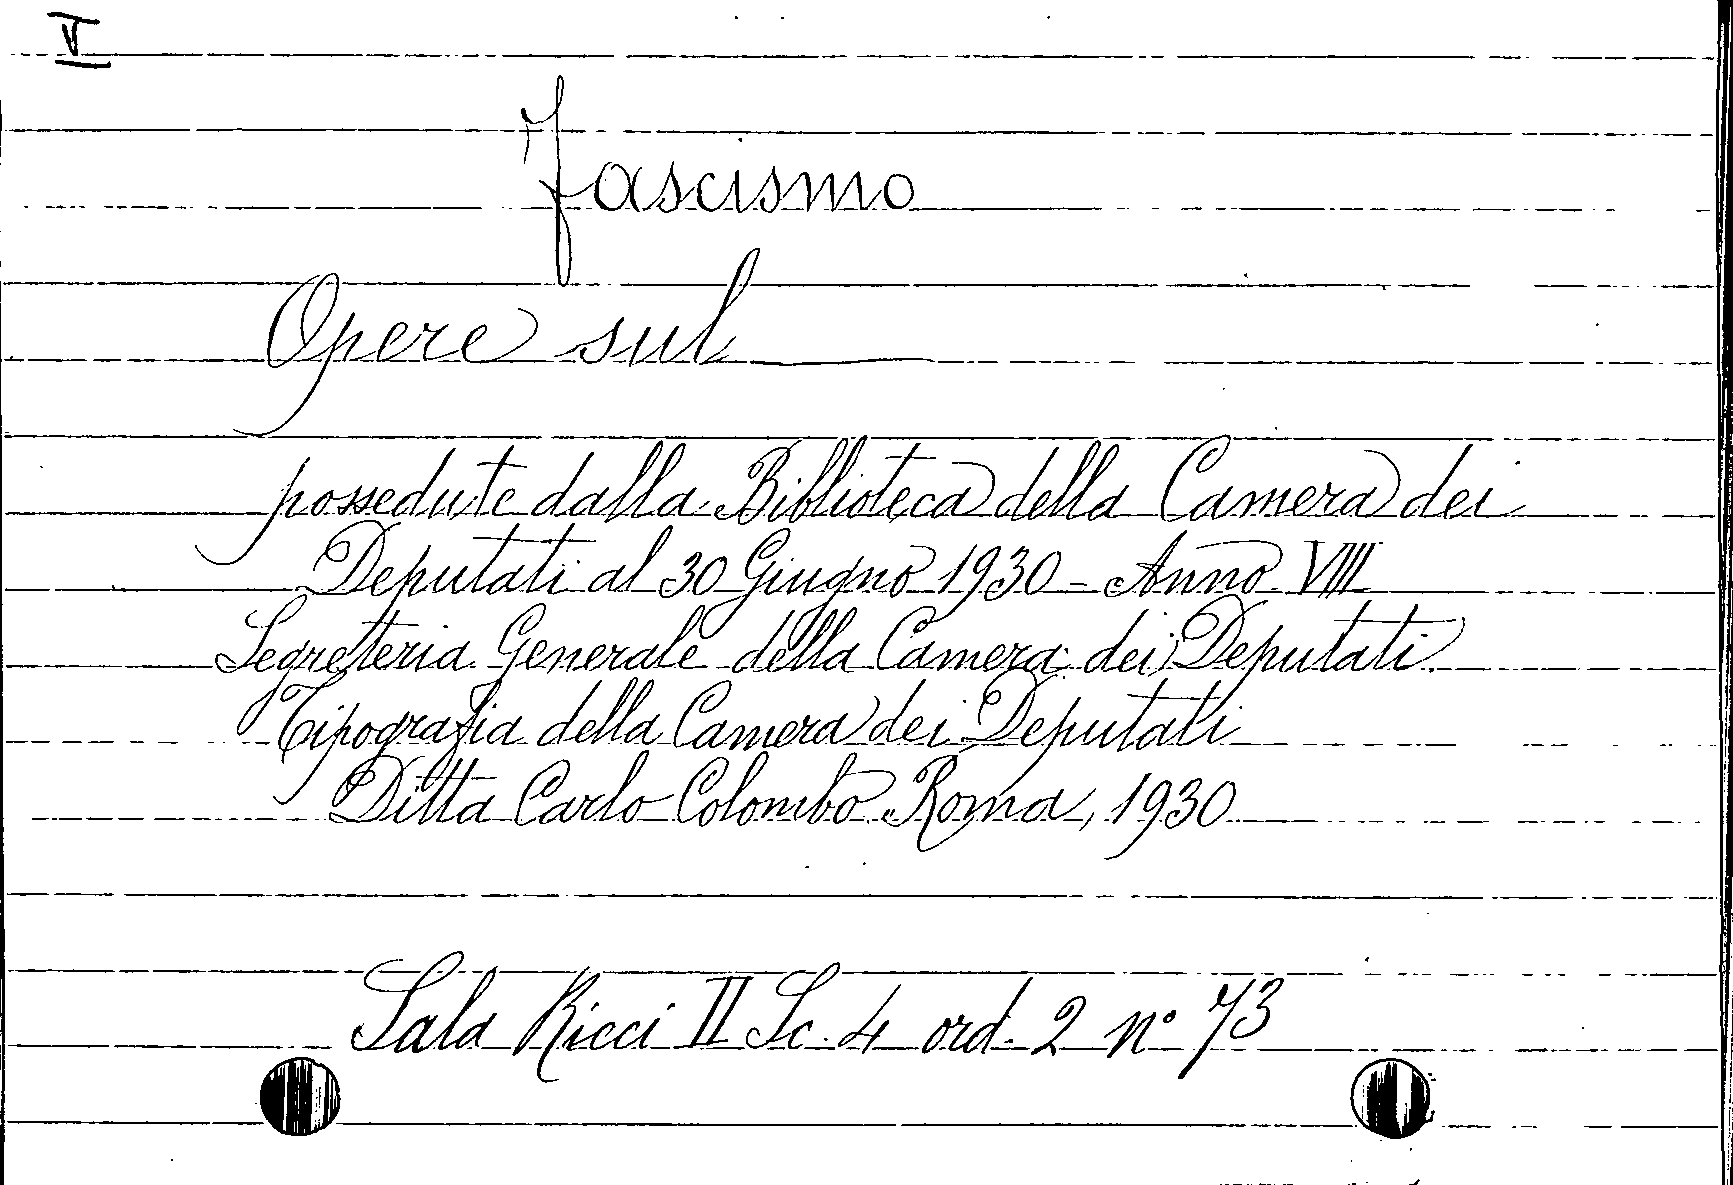 V
Fascismo
Opere sul
possedute dalla Biblioteca della Camera dei
Deputati al 30 Giugno 1930 - Anno VIII
Segreteria Generale della Camera dei Deputati
Tipografia della Camera dei Deputati
Ditta Carlo Colombo Roma, 1930
Sala Ricci II Sc. 4 ord. 2 n° 73